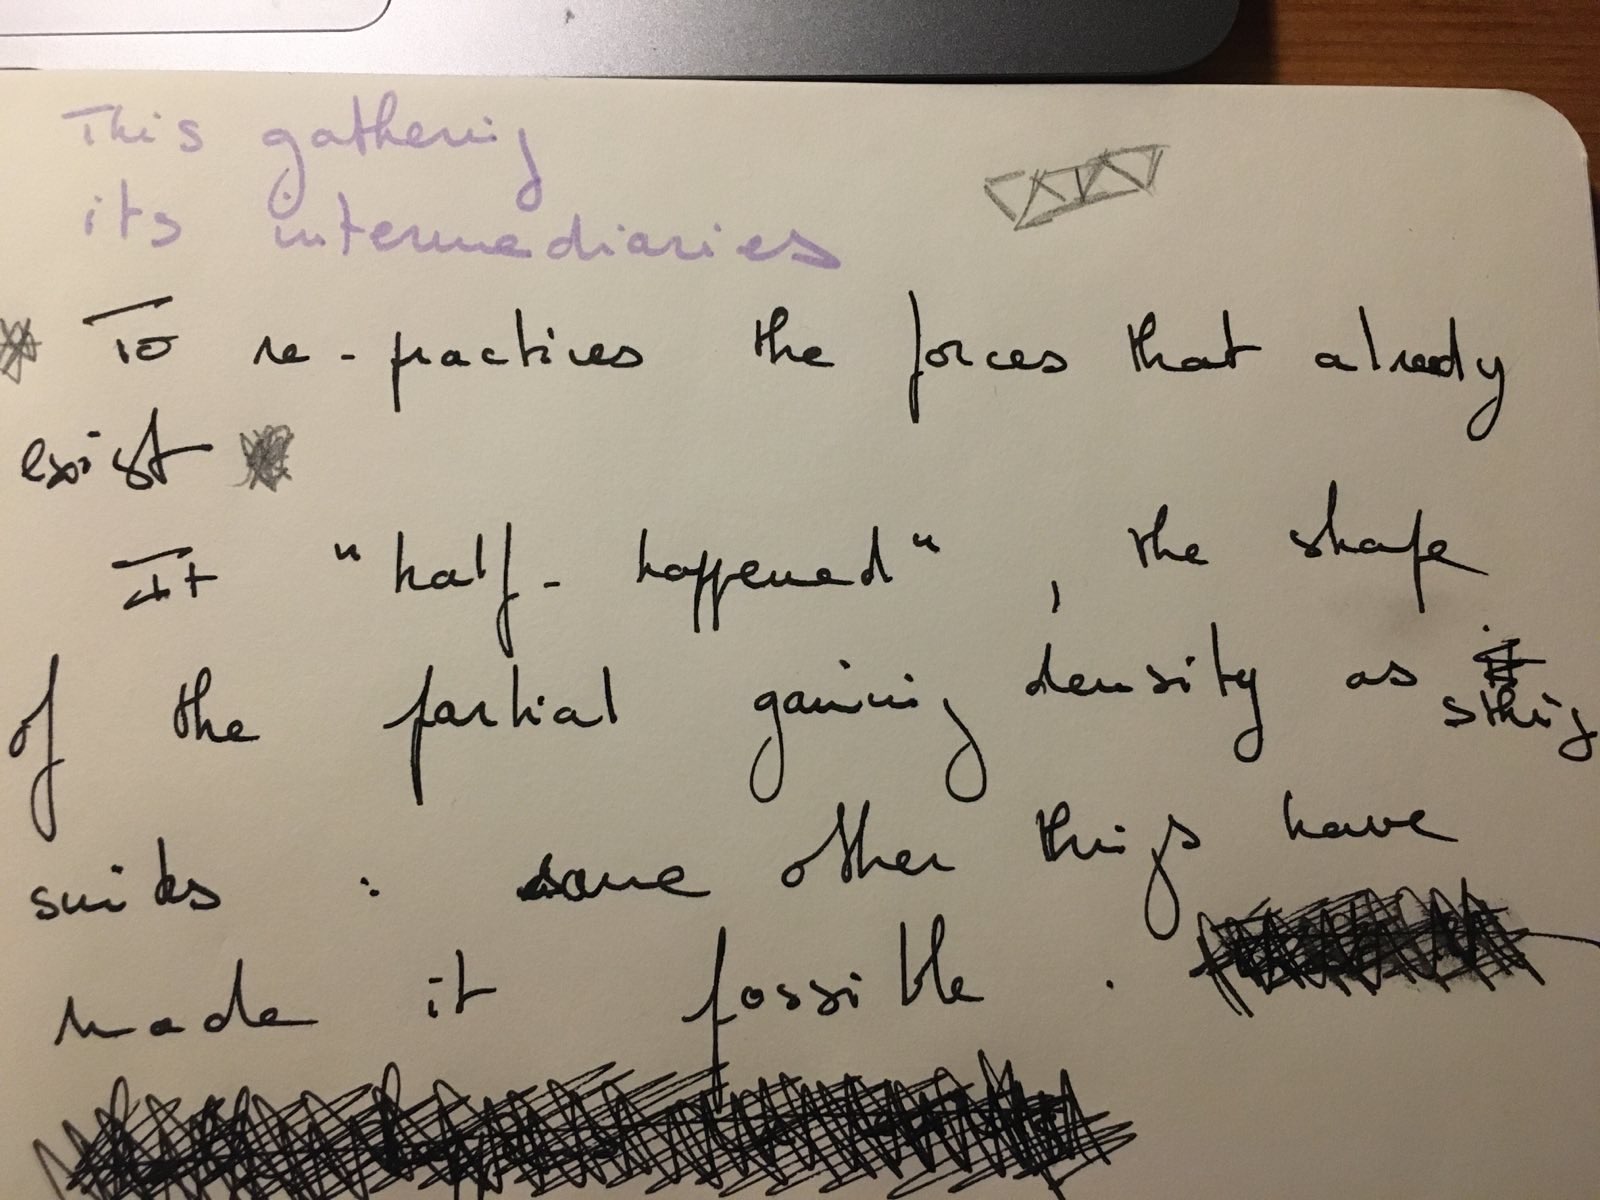 This gathering
its intermediaries
To re-practices the forces that already
exist
It "half-happened", the shape
of the partial gaining density as sthing
suits : some other things have
made it possible.